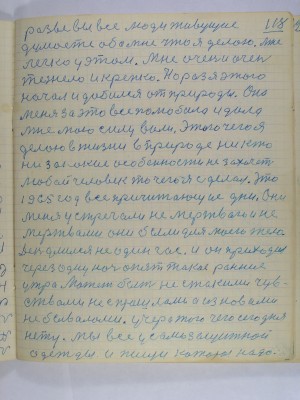 118
разве вы все люди живущие
думаете обо мне что я делаю, мне
легко у этом. Мне очень очень
тяжело и крепко. Но раз я этого
начал и добился от природы. Она
меня за это все полюбила и дала
мне мою силу воли. Этого чего я
делаю в жизни в природе ни кто
ни за какие особенности не захочет
любой человек то чего я сделал. Это
1965 год все причитающие дни. Они
меня устречали не мертвого а не
мертвами они были для моего тела
не один час. И он приходил
через одну ночь опят такое раннее
утро. Может быть не с такими чув-
ствами не с прошлами а с новами
не бываломи. учора того чего сегодня
нету. Мы все у самозащитной
одежды и жили которая надо